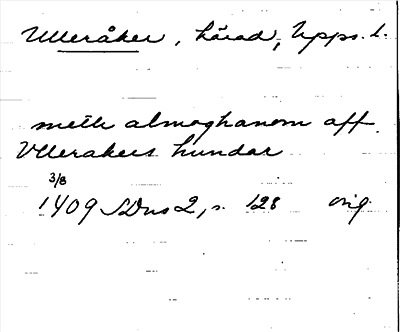 Ulleråker, härad, Upps. l.
meth almoghanom aff
Vllerakers hundar
3/8
1409 SDns 2, s. 128 orig.